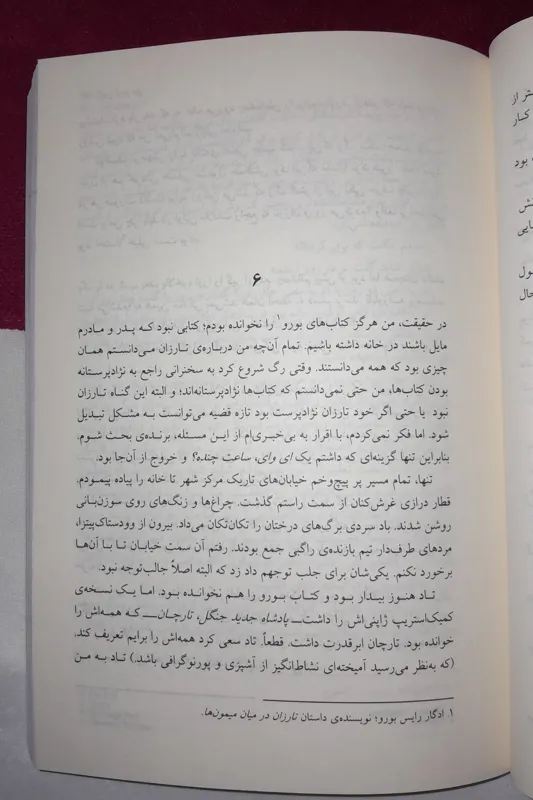 ۶
در حقیقت، من هرگز کتاب‌های بورو۱ را نخوانده بودم؛ کتابی نبود که پدر و مادرم
مایل باشند در خانه داشته باشیم. تمام آن‌چه من درباره‌ی تارزان می‌دانستم همان
چیزی بود که همه می‌دانستند. وقتی رگ شروع کرد به سخنرانی راجع به نژادپرستانه
بودن کتاب‌ها، من حتی نمی‌دانستم که کتاب‌ها نژادپرستانه‌اند؛ و البته این گناه تارزان
نبود یا حتی اگر خود تارزان نژادپرست بود تازه قضیه می‌توانست به مشکل تبدیل
شود. اما فکر نمی‌کردم، با اقرار به بی‌خبری‌ام از این مسئله، برنده‌ی بحث شوم،
بنابراین تنها گزینه‌ای که داشتم یک ای وای، ساعت چنده؟ و خروج از آن‌جا بود.
تنها، تمام مسیر پر پیچ‌وخم خیابان‌های تاریک مرکز شهر تا خانه را پیاده پیمودم.
قطار درازی غرش‌کنان از سمت راستم گذشت. چراغ‌ها و زنگ‌های روی سوزن‌بانی
روشن شدند. باد سردی برگ‌های درختان را تکان‌تکان می‌داد. بیرون از وودستاک‌پیتزا،
مردهای طرف‌دار تیم بازنده‌ی راگبی جمع بودند. رفتم آن سمت خیابان تا با آن‌ها
برخورد نکنم. یکی‌شان برای جلب توجهم داد زد که البته اصلاً جالب‌توجه نبود.
تاد هنوز بیدار بود و کتاب بورو را هم نخوانده بود. اما یک نسخه‌ی
کمیک‌استریپ ژاپنی‌اش را داشت ــ پادشاه جدید جنگل، تارچان ــ که همه‌اش را
خوانده بود. تارچان ابرقدرت داشت. قطعاً. تاد سعی کرد همه‌اش را برایم تعریف کند.
(که به‌نظر می‌رسید آمیخته‌ای نشاط‌انگیز از آشپزی و پورنوگرافی باشد.) تاد به من
۱. ادگار رایس بورو؛ نویسنده‌ی داستان تارزان در میان میمون‌ها.
تر از
کار
بود
حال